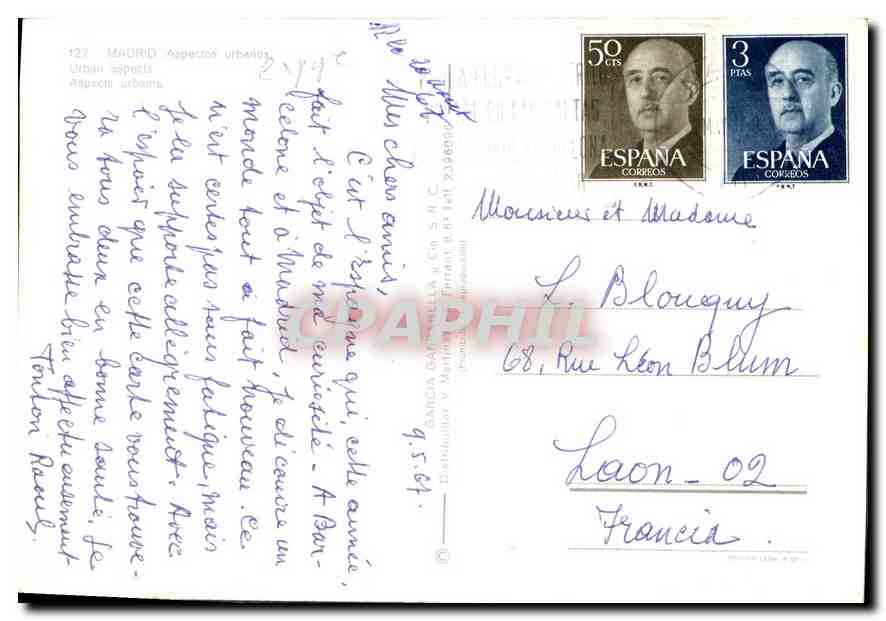 127. MADRID. Aspectos urbanos.
Urban aspects.
Aspects urbains.
Mes chers amis,
C'est l'Espagne qui, cette année,
fait l'objet de ma curiosité. A Bar-
celone et à Madrid, je découvre un
monde tout à fait nouveau. Ce
n'est certes pas sans fatigue, mais
je la supporte allègrement. Avec
l'espoir que cette carte vous trouve-
ra tous deux en bonne santé. Je
vous embrasse bien affectueusement
Tonton Raoul.
9.5.67.
GARCIA GARRABELLA y Cia. S.N.C.
©
50
CTS
ESPAÑA
CORREOS
F.N.M.T.
3
PTAS
ESPAÑA
CORREOS
F.N.M.T.
Monsieur et Madame
L. Blougny
68, Rue Léon Blum
Laon - 02
Francia.
CPAPHIL